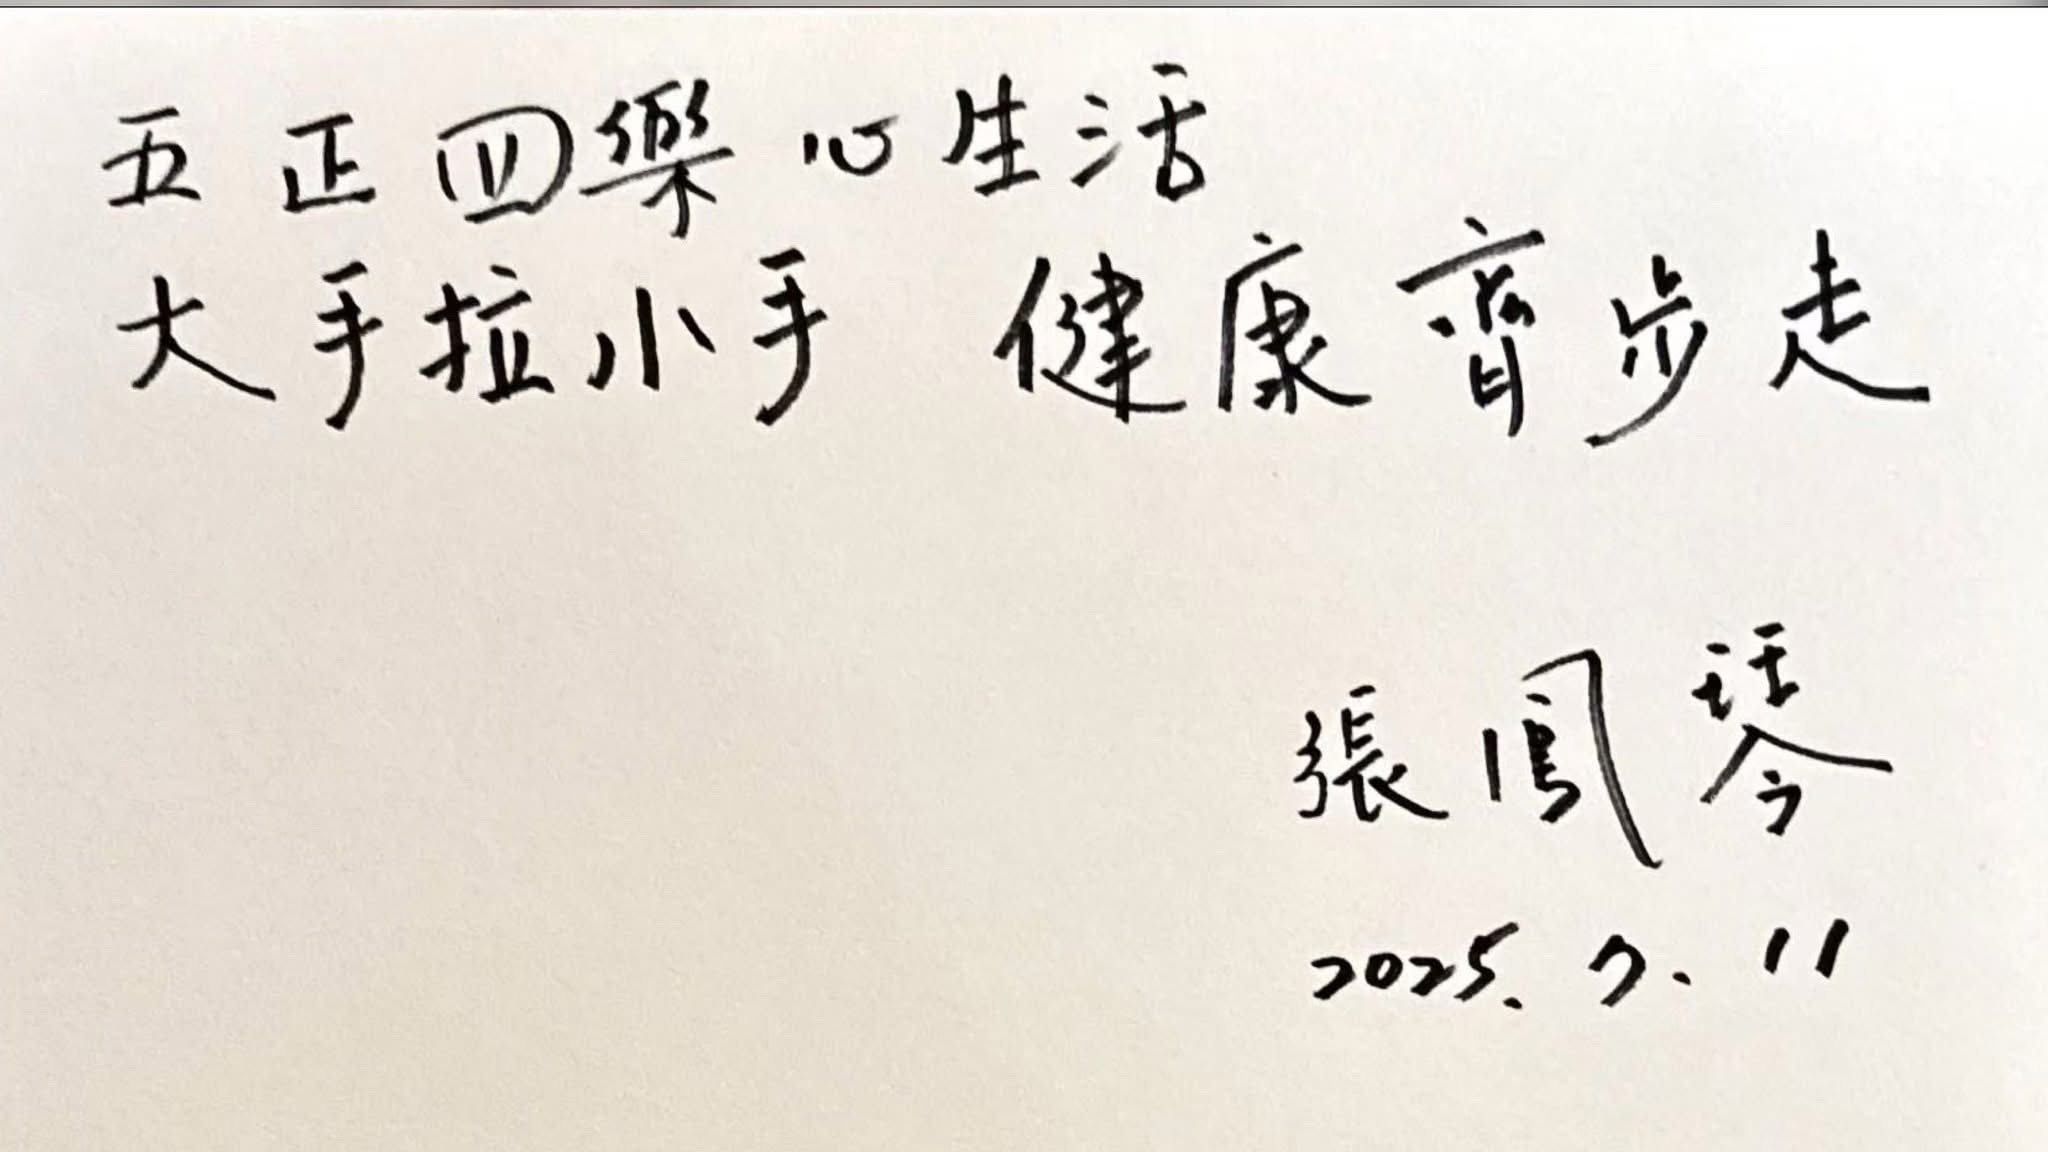 五正四樂心生活
大手拉小手 健康齊步走
張鳳琴
2025.7.11